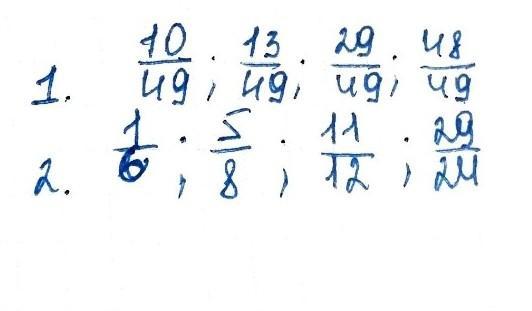 1. 10/49; 13/49; 29/49; 48/49
2. 1/6; 5/8; 11/12; 29/24